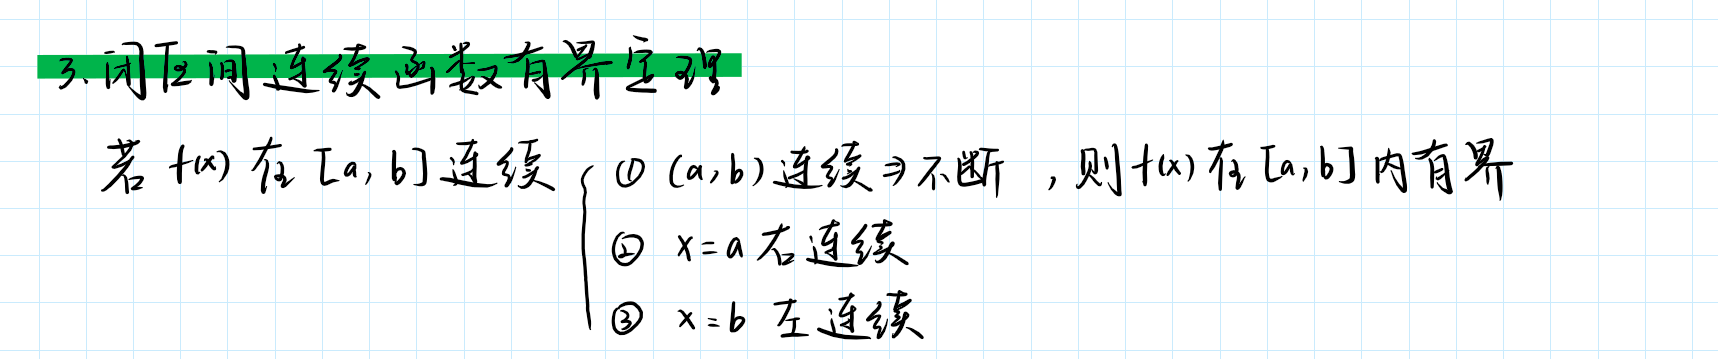 3.闭区间连续函数有界定理
若 f(x) 在 [a, b] 连续 { ① (a, b) 连续 ⇒ 不断 , 则 f(x) 在 [a, b] 内有界
② x=a 右连续
③ x=b 左连续